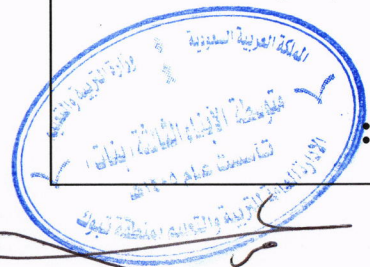 المملكة العربية السعودية
وزارة التربية والتعليم
متوسطة الأبناء الثالثة (بنات)
تأسست عام
الإدارة العامة للتربية والتعليم بمنطقة تبوك
: